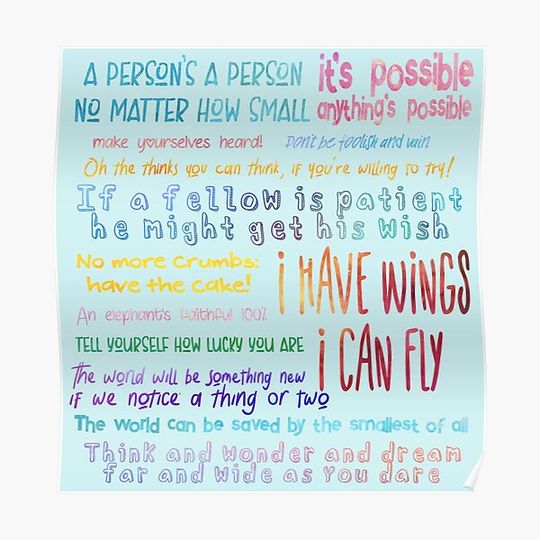 A PERSON'S A PERSON
NO MATTER HOW SMALL
it's possible
anything's possible
make yourselves heard!
Don't be foolish and vain
Oh the thinks you can think, if you're willing to try!
If a fellow is patient
he might get his wish
No more crumbs:
have the cake!
i HAVE WiNGS
i CAN FLY
An elephant's faithful 100%
TELL YOURSELF HOW LUCKY YOU ARE
The world will be something new
if we notice a thing or two
The world can be saved by the smallest of all
Think and wonder and dream
far and wide as you dare